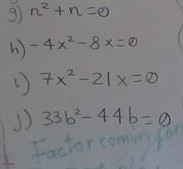 g) n² + n = 0
h) - 4x² - 8x = 0
i) 7x² - 21x = 0
j) 33b² - 44b = 0
Factor común